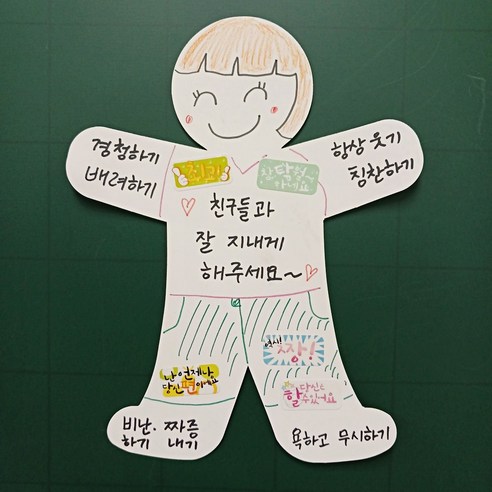 경청하기
배려하기
항상 웃기
칭찬하기
최고!
참 잘했어요
친구들과
잘 지내게
해주세요~
난 언제나
당신편이에요
역시!
짱!
당신은
할 수 있어요
비난· 짜증
하기 내기
욕하고 무시하기